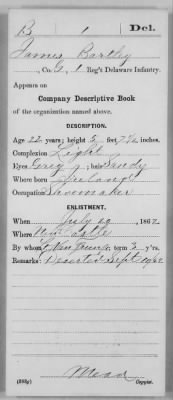 B 1 Del.
James Bartley
, Co. G, 1 Reg't Delaware Infantry.
Appears on
Company Descriptive Book
of the organization named above.
DESCRIPTION.
Age 22 years; height 5 feet 7½ inches.
Complexion Light
Eyes Gray; hair Sandy
Where born Ireland
Occupation Shoemaker
ENLISTMENT.
When July 29, 1862.
Where
By whom term 3 y'rs.
Remarks: Deserted Sept 1862
Mead
(383g) Copyist.